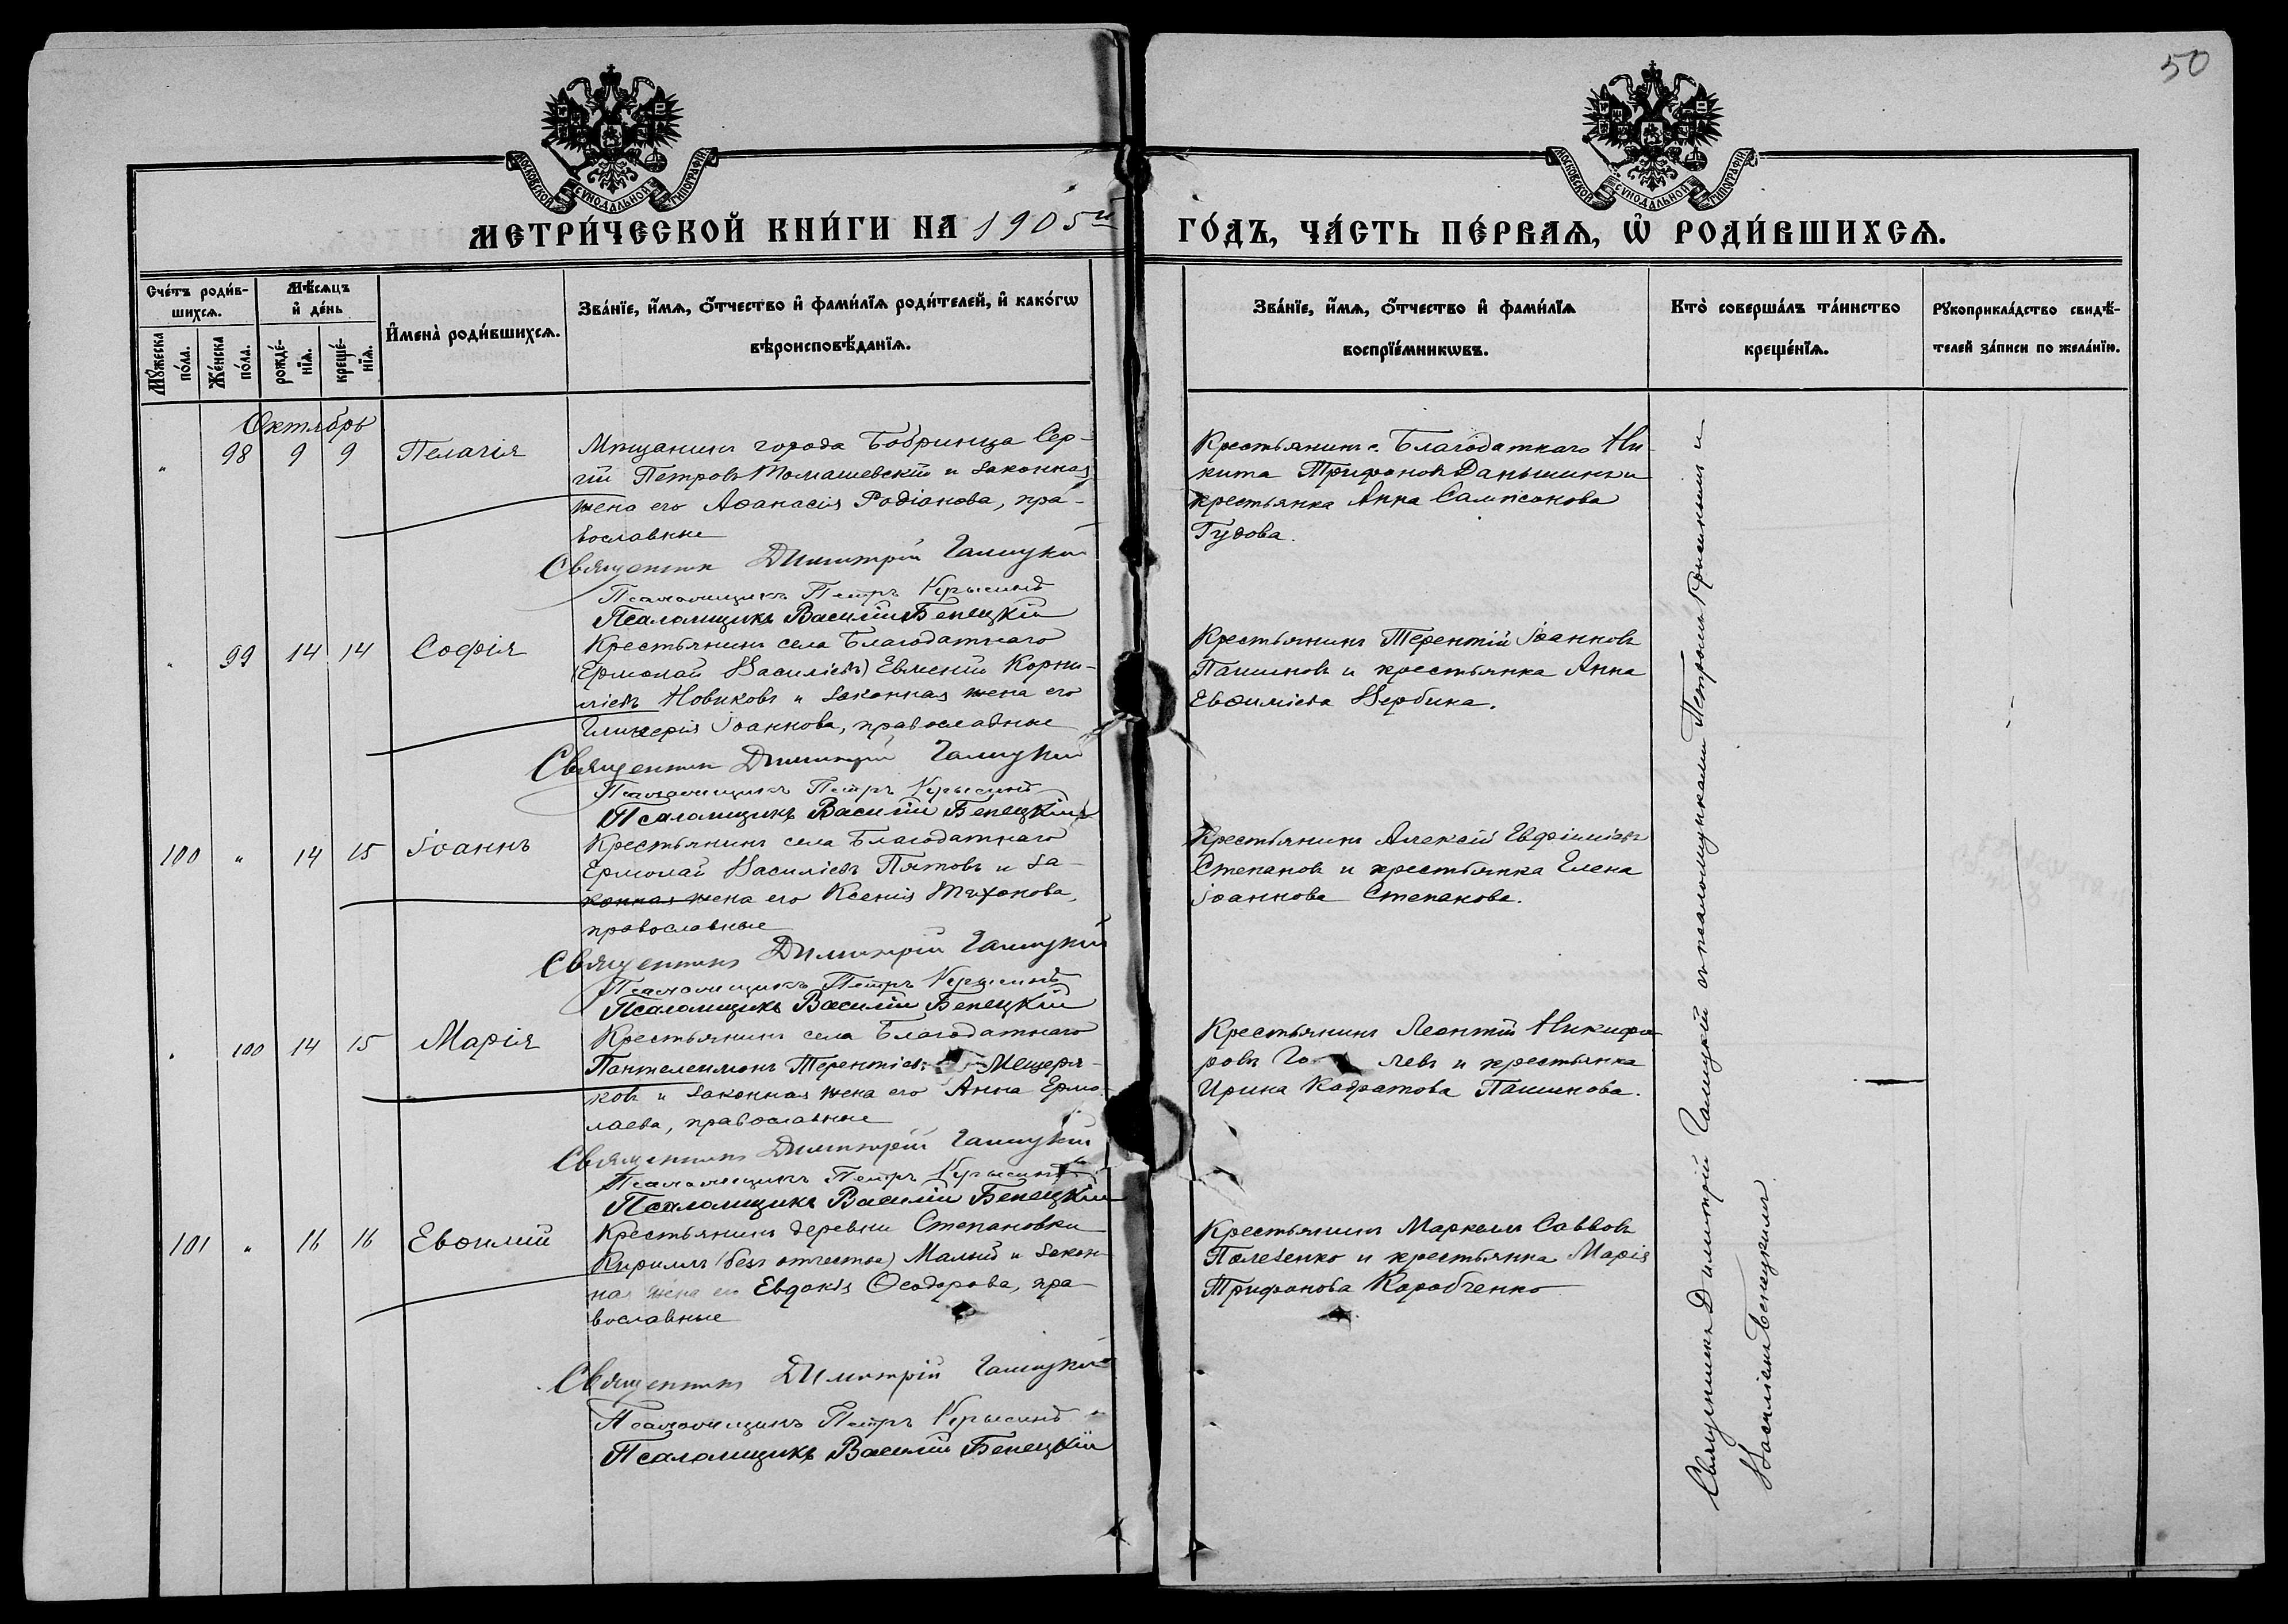 50
МОСКОВСКОЙ СѴНОДАЛЬНОЙ ТИПОГРАФІИ
МОСКОВСКОЙ СѴНОДАЛЬНОЙ ТИПОГРАФІИ
МЕТРИ́ЧЕСКОЙ КНИ́ГИ НА 1905й
ГО́ДЪ, ЧА́СТЬ ПЕ́РВАѦ, Ѡ҆ РОДИ́ВШИХСѦ.
Сче́тъ роди́в-
шихсѧ.
Мꙋ́жеска по́ла.
Же́нска по́ла.
Мѣ́сѧцъ и҆ де́нь
рожде́-нїѧ.
креще́-нїѧ.
И҆мена̀ роди́вшихсѧ.
Зва́нїе, и҆́мѧ, ѻ҆́тчество и҆ фами́лїѧ роди́телей, и҆ како́гѡ
вѣроисповѣ́данїѧ.
Зва́нїе, и҆́мѧ, ѻ҆́тчество и҆ фами́лїѧ
воспрїе́мникѡвъ.
Кто̀ соверша́лъ та́инство
креще́нїѧ.
Рꙋкоприкла́дство свидѣ́-
телей за́писи по жела́нїю.
Октябрь
" 98 9 9 Пелагія
Мѣщанинъ города Бобринца Сер-
гій Петровъ Томашевскій и законная
жена его Аѳанасія Родіонова, пра-
вославные
Священникъ Димитрій Галицкій
Псаломщикъ Петръ Крысинъ
Псаломщикъ Василій Бенецкій
Крестьянинъ с. Благодатнаго Ни-
кита Трифоновъ Даньшинъ и
крестьянка Анна Сампсонова
Гудова.
" 99 14 14 Софія
Крестьянинъ села Благодатнаго
(Ермолай Василіевъ) Евмений Корни-
ліевъ Новиковъ и законная жена его
Гликерія Іоаннова, православные
Священникъ Димитрій Галицкій
Псаломщикъ Петръ Крысинъ
Псаломщикъ Василій Бенецкій
Крестьянинъ Терентій Іоанновъ
Пашиновъ и крестьянка Анна
Евѳиміева Вербина.
100 " 14 15 Іоаннъ
Крестьянинъ села Благодатнаго
Ермолай Василіевъ Пятовъ и за-
конная жена его Ксенія Тихонова,
православные
Священникъ Димитрій Галицкій
Псаломщикъ Петръ Крысинъ
Псаломщикъ Василій Бенецкій
Крестьянинъ Алексій Евфиміевъ
Степановъ и крестьянка Елена
Іоаннова Степанова.
" 100 14 15 Марія
Крестьянинъ села Благодатнаго
Пантелеимонъ Терентіевъ Мещеря-
ковъ и законная жена его Анна Ермо-
лаева, православные
Священникъ Димитрій Галицкій
Псаломщикъ Петръ Крысинъ
Псаломщикъ Василій Бенецкій
Крестьянинъ Леонтій Никифо-
ровъ и крестьянка
Ирина Кодратова Пашинова.
101 " 16 16 Евѳимій
Крестьянинъ деревни Степановки
Кириллъ (безъ отчества) Малый и закон-
ная жена его Евдокія Ѳеодорова, пра-
вославные
Священникъ Димитрій Галицкій
Псаломщикъ Петръ Крысинъ
Псаломщикъ Василій Бенецкій
Крестьянинъ Маркеллъ Саввовъ
Полезенко и крестьянка Марія
Трифонова Коробченко
Священникъ Димитрій Галицкій съ псаломщиками Петромъ Крысинымъ и
Василіемъ Бенецкимъ